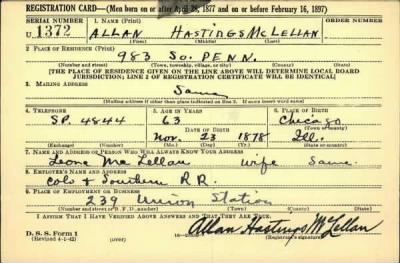 REGISTRATION CARD—(Men born on or after April 28, 1877 and on or before February 16, 1897)
SERIAL NUMBER 1. NAME (Print)
U 1372 ALLAN HASTINGS McLELLAN
(First) (Middle) (Last)
2. PLACE OF RESIDENCE (Print)
983 SO. PENN.
(Number and street) (Town, township, village, or city) (County) (State)
[THE PLACE OF RESIDENCE GIVEN ON THE LINE ABOVE WILL DETERMINE LOCAL BOARD
JURISDICTION; LINE 2 OF REGISTRATION CERTIFICATE WILL BE IDENTICAL]
3. MAILING ADDRESS
Same
[Mailing address if other than place indicated on line 2. If same insert word same]
4. TELEPHONE 5. AGE IN YEARS 6. PLACE OF BIRTH
SP. 4844 63 Chicago
DATE OF BIRTH (Town or county)
Nov. 23 1878 Ill.
(Exchange) (Number) (Mo.) (Day) (Yr.) (State or country)
7. NAME AND ADDRESS OF PERSON WHO WILL ALWAYS KNOW YOUR ADDRESS
Leone McLellan Wife Same
8. EMPLOYER'S NAME AND ADDRESS
Colo & Southern R R.
9. PLACE OF EMPLOYMENT OR BUSINESS
239 Union Station
(Number and street or R. F. D. number) (Town) (County) (State)
I AFFIRM THAT I HAVE VERIFIED ABOVE ANSWERS AND THAT THEY ARE TRUE.
D. S. S. Form 1
(Revised 4-1-42) (over) Allan Hastings McLellan
(Registrant's signature)